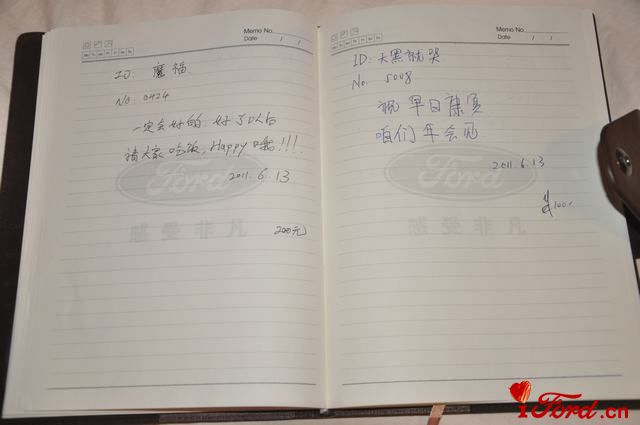 Memo No.
Date / /
ID: 魔福
No: 0424
一定会好的,好了以后
请大家吃饭,Happy哦!!!
2011.6.13
Ford
感受非凡
200元
Memo No.
Date / /
ID: 天黑就哭
No. 5008
祝早日康复
咱们年会见
2011.6.13
Ford
100.
感受非凡
iFord.cn